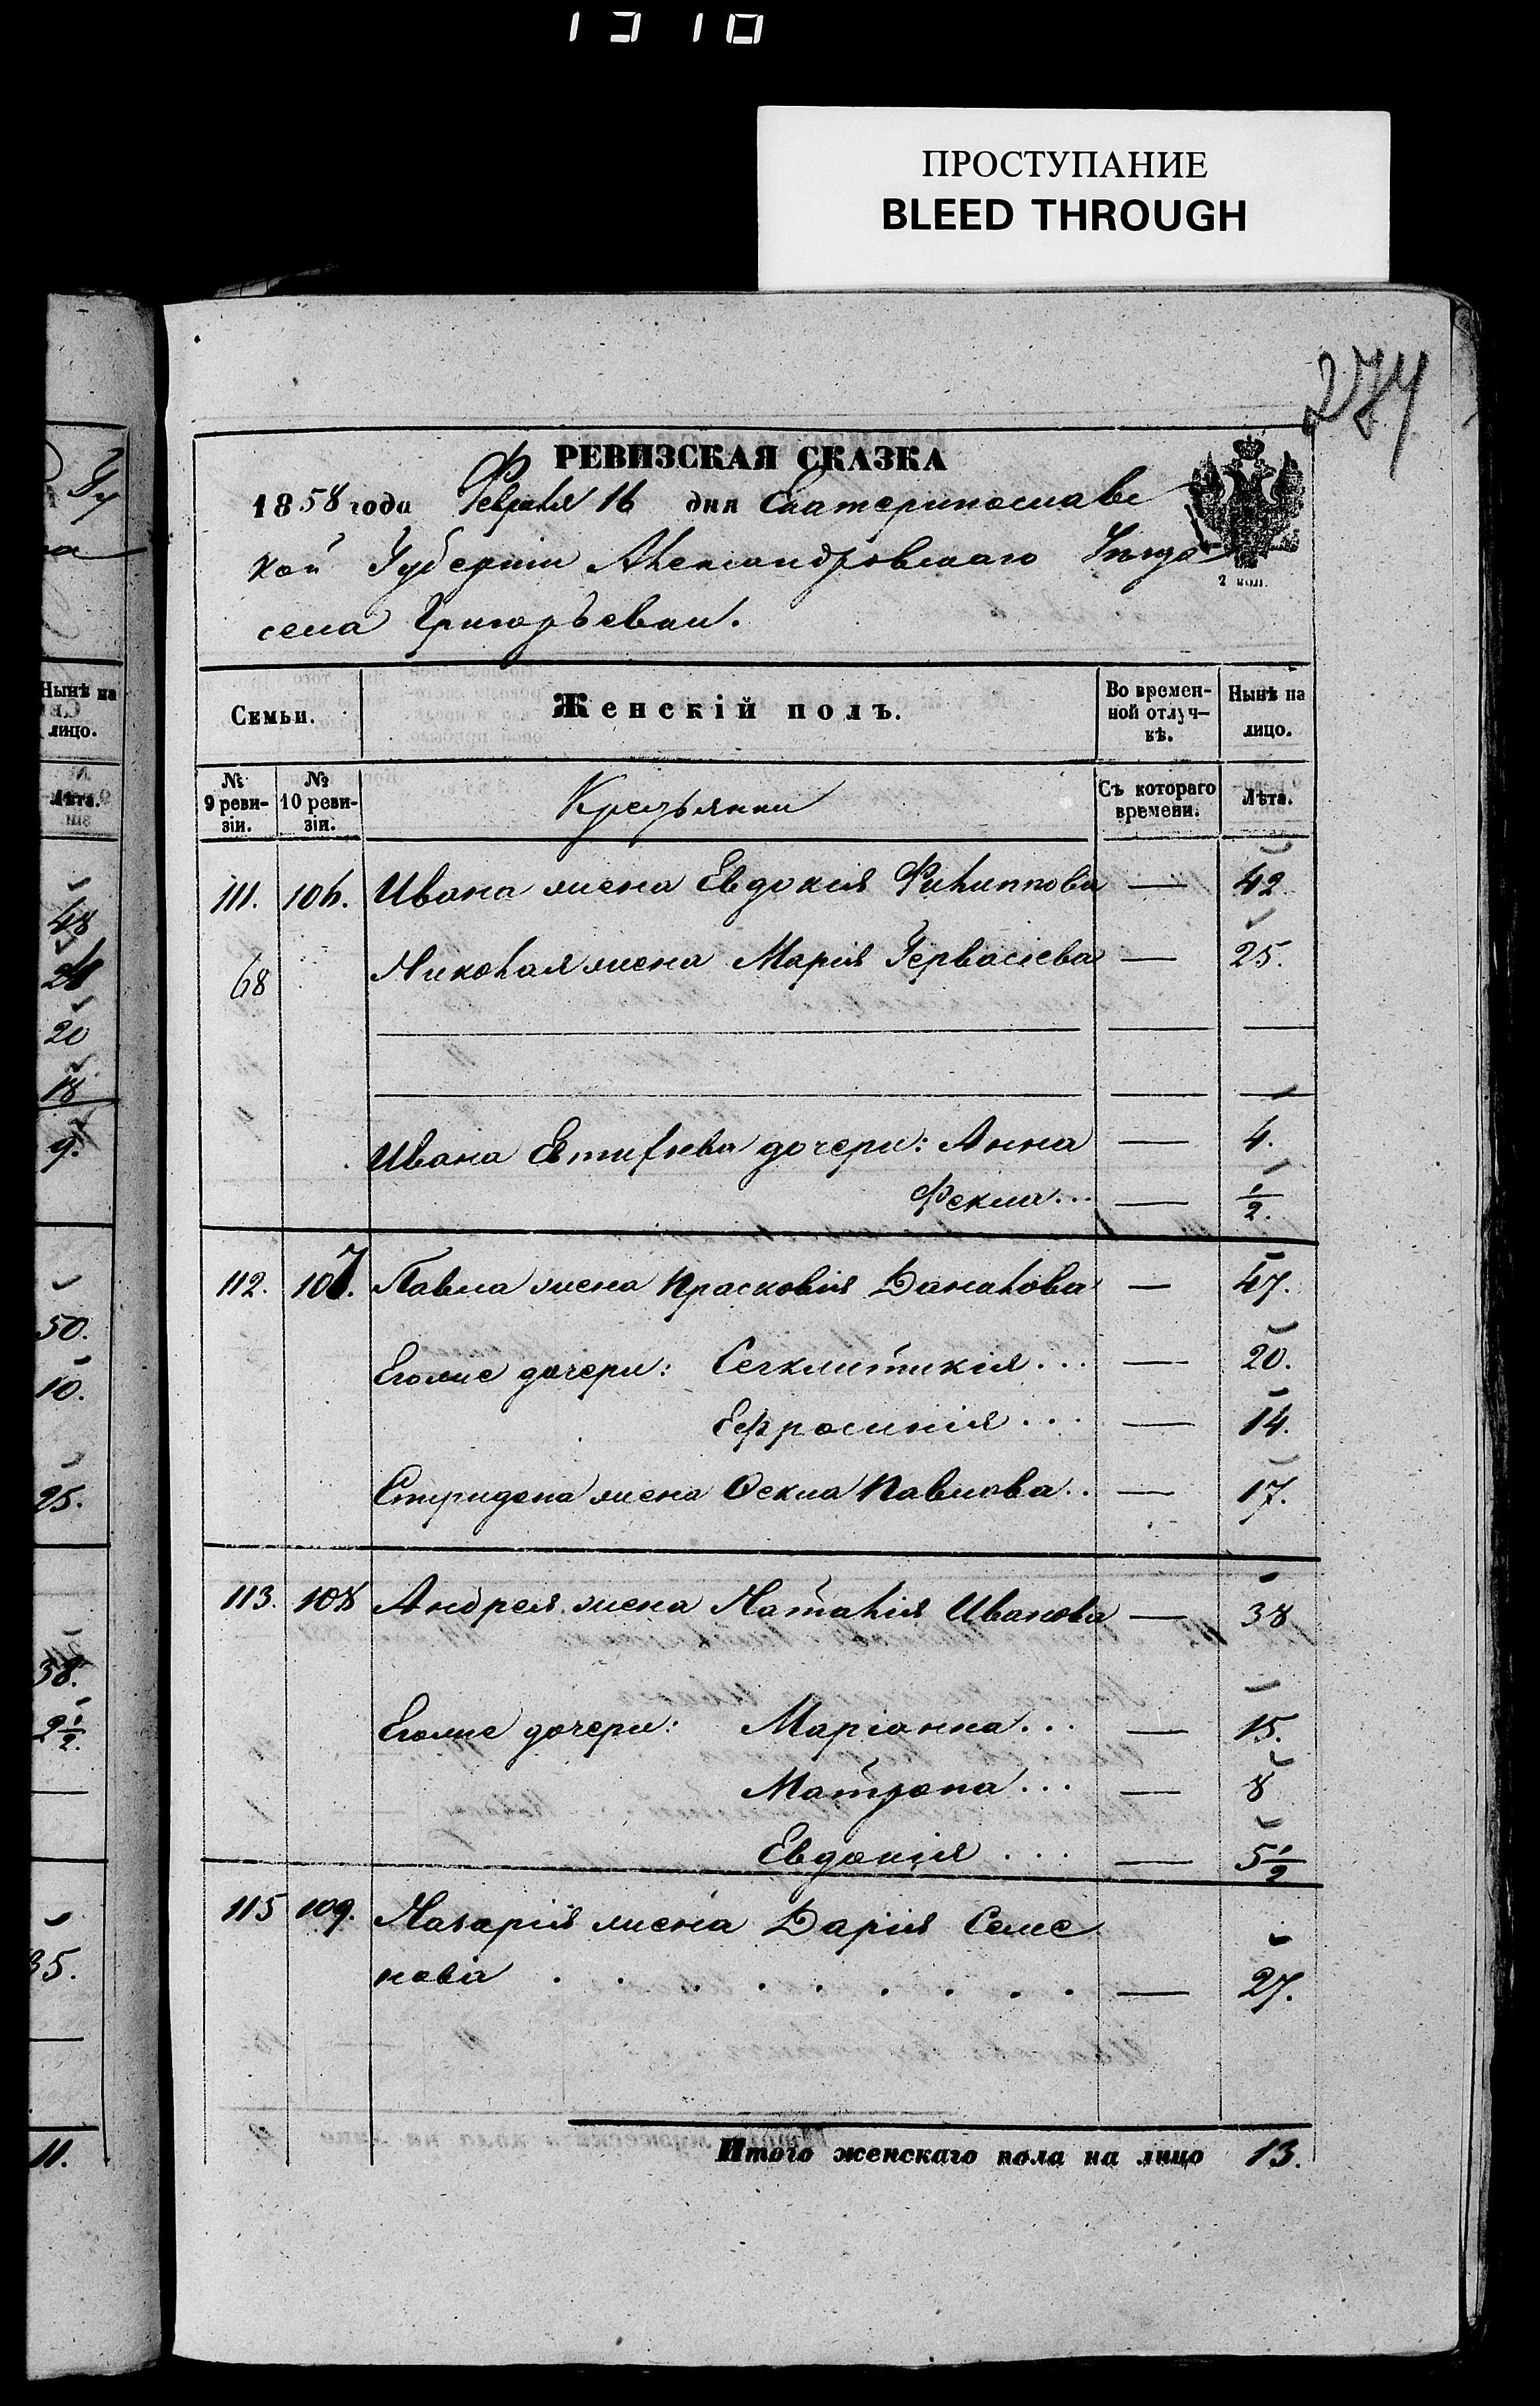 1310
ПРОСТУПАНИЕ
BLEED THROUGH
274
РЕВИЗСКАЯ СКАЗКА
1858 года Февраля 16 дня Екатеринославс
кой Губерніи Александровскаго Уѣзда
2 коп.
села Григорьевки.
Семьи. Женскій полъ. Во времен-ной отлуч-кѣ. Нынѣ на лицо.
№ 9 реви-зіи. № 10 реви-зіи. Крестьянки Съ котораго времени. Лѣта.
111. 106. Ивана жена Евдокія Филиппова — 42
68 Николая жена Марія Гервасіева — 25.
Ивана Евтифіева дочери: Анна — 4.
Фекла... — 1/2.
112. 107. Павла жена Прасковія Данилова — 47.
Егоже дочери: Сеґклитикія... — 20.
Ефросинія... — 14.
Спиридона жена Ѳекла Павлова.. — 17.
113. 108 Андрея жена Наталія Иванова — 38
Егоже дочери: Маріанна... — 15.
Матрона... — 8
Евдокія... — 5 1/2
115 109. Назарія жена Дарія Семе
нова . . . . . . . . . — 27.
Итого женскаго пола на лицо 13.
Нынѣ на
лицо.
Лѣта.
48
20
18
9.
50.
10.
25.
38.
2 1/2.
35.
11.